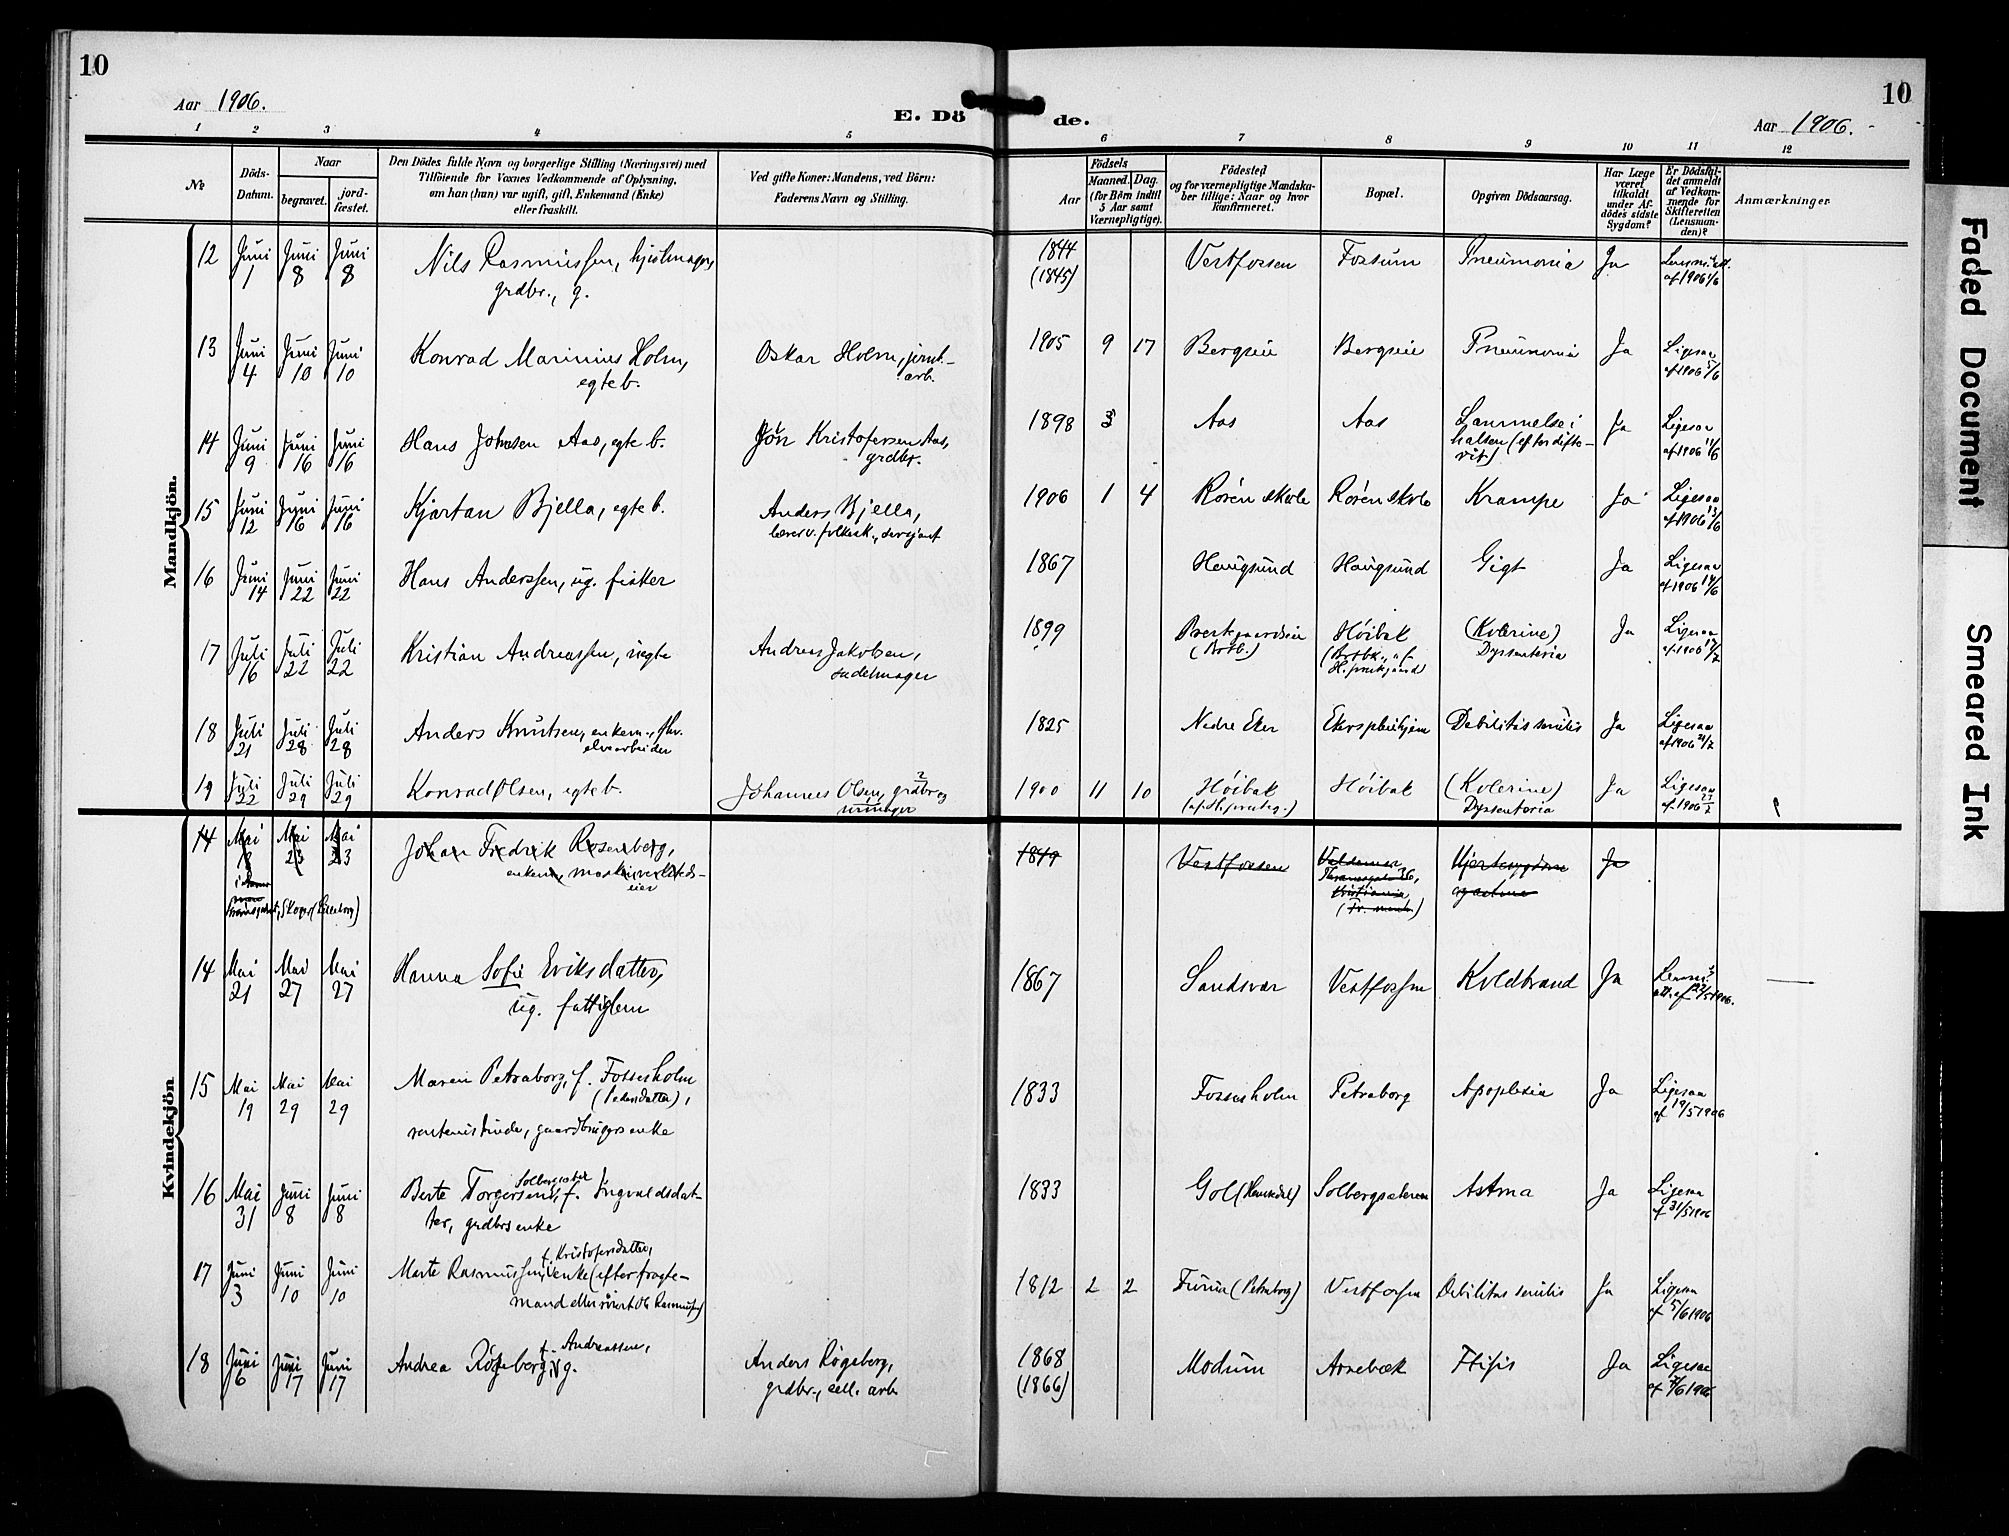 10
Aar 1906.
E. Dö
de.
10
Aar 1906.
1 2 3 4 5 6 7 8 9 10 11 12
№
Döds-
Datum.
Naar
begravet.
jord-
fæstet.
Den Dödes fulde Navn og borgerlige Stilling (Næringsvei) med
Tilföiende for Voxnes Vedkommende af Oplysning,
om han (hun) var ugift, gift, Enkemand (Enke)
eller fraskilt.
Ved gifte Koner: Mandens, ved Börn:
Faderens Navn og Stilling.
Födsels
Aar
Maaned.
Dag.
(for Börn indtil
5 Aar samt
Værnepligtige).
Födested
og for værnepligtige Mandska-
ber tillige: Naar og hvor
konfirmeret.
Bopæl.
Opgiven Dödsaarsag.
Har Læge
været
tilkaldt
under Af-
dödes sidste
Sygdom?
Er Dödsfal-
det anmeldt
af Vedkom-
mende for
Skifteretten
(Lensman-
den)?
Anmærkninger
Mandkjön.
12 Juni 1 Juni 8 Juni 8 Nils Rasmussen, hjulmager,
grdbr., g.
1844
(1845)
Vestfossen Fossum Pneumonia Ja
af 1906 1/6
13 Juni 4 Juni 10 Juni 10 Konrad Marinius Holm,
egteb.
Oskar Holm, jernb.-
arb.
1905 9 17 Bergseie Bergseie Pneumonia Ja Ligesaa
af 1906 5/6
14 Juni 9 Juni 16 Juni 16 Hans Johnsen Aas, egteb.
Jon Kristofersen Aas,
grdbr.
1898 3 Aas Aas Lammelse i
halsen (efter difte-
rit)
Ja Ligesaa
af 1906 11/6
15 Juni 12 Juni 16 Juni 16 Kjartan Bjella, egteb.
Anders Bjella,
lærer v. folkesk., sersjant
1906 1 4 Rosén skole Rosén skole Krampe Ja Ligesaa
af 1906 13/6
16 Juni 14 Juni 22 Juni 22 Hans Anderssen, ug. fisker
1867 Haugsund Haugsund Gigt Ja Ligesaa
af 1906 14/6
17 Juli 16 Juli 22 Juli 22 Kristian Andreassen, uegte
Andreas Jakobsen,
sadelmager
1899 Prestgaardseie Höibak (Kolerine)
Dyssenteria
Ja Ligesaa
af 1906 17/7
18 Juli 21 Juli 28 Juli 28 Anders Knutsen, enkem., fhv.
elvearbeider
1825 Nedre Eker Ekers pleiehjem Debilitas senilis Ja Ligesaa
af 1906 21/7
19 Juli 22 Juli 29 Juli 29 Konrad Olsen, egteb.
Johannes Olsen, grdbr og
urmager
1900 11 10 Höibak Höibak (Kolerine)
Dyssenteria
Ja Ligesaa
af 1906
Kvindekjön
14 Mai 18 Mai 23 Mai 23 Johan Fredrik Rosenberg,
enkem., mek.verksteds-
eier
1849 Vestfossen Valdemar
Thranesgade 36,
Kristiania
Hjertesygdom
Ja
14 Mai 21 Mai 27 Mai 27 Hanna Sofie Eriksdatter,
ug. fattiglem
1867 Sandsvær Vestfossen Koldbrand Ja
15 Mai 19 Mai 29 Mai 29 Maren Petraborg, f. Fossesholm
(Pedersdatter),
rentenistinde, gaardbrugersenke
1833 Fossesholm Petraborg Apoplexia Ja Ligesaa
af 19/5 1906
16 Mai 31 Juni 8 Juni 8 Berte Torgersen, f. Ingvaldsdat-
ter, grdbrsenke
1833 Gol (Hemsedal) Solbergsæteren Astma Ja Ligesaa
af 31/5 1906
f. Kristofersdatter,
17 Juni 3 Juni 10 Juni 10 Marte Rasmussen, enke (efter fragte-
mand eller rorert Ole Rasmussen)
1812 2 2 Furua (Petraborg) Vestfossen Debilitas senilis Ja Ligesaa
af 5/6 1906
f. Andreassen,
18 Juni 6 Juni 17 Juni 17 Andrea Rögeberg, g.
Anders Rögeberg,
grdbr., cell. arb.
1868
(1866)
Modum Arnebæk Ftisis Ja Ligesaa
Faded Document
Smeared Ink